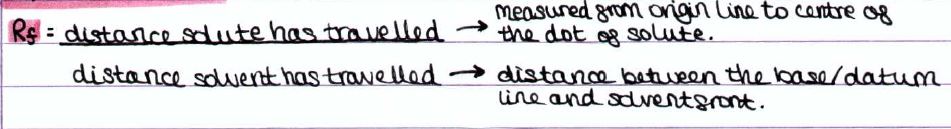 measured from origin line to centre of
Rf = distance solute has travelled → the dot of solute.
distance solvent has travelled → distance between the base/datum
line and solvent front.